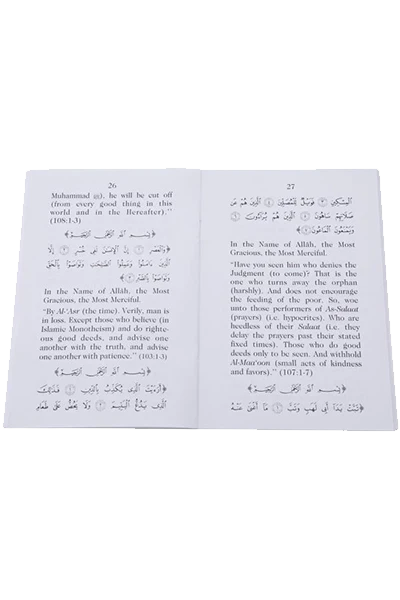 26
Muhammad ﷺ), he will be cut off
(from every good thing in this
world and in the Hereafter)."
(108:1-3)
﴿ بِسْمِ اللَّهِ الرَّحْمَٰنِ الرَّحِيمِ ﴾
﴿وَالْعَصْرِ ﴿١﴾ إِنَّ الْإِنسَانَ لَفِي خُسْرٍ ﴿٢﴾ إِلَّا
الَّذِينَ ءَامَنُوا وَعَمِلُوا الصَّالِحَاتِ وَتَوَاصَوْا بِالْحَقِّ
وَتَوَاصَوْا بِالصَّبْرِ ﴿٣﴾
In the Name of Allâh, the Most
Gracious, the Most Merciful.
"By Al-'Asr (the time). Verily, man is
in loss. Except those who believe (in
Islamic Monotheism) and do righte-
ous good deeds, and advise one
another with the truth, and advise
one another with patience." (103:1-3)
﴿ بِسْمِ اللَّهِ الرَّحْمَٰنِ الرَّحِيمِ ﴾
﴿أَرَءَيْتَ الَّذِي يُكَذِّبُ بِالدِّينِ ﴿١﴾ فَذَٰلِكَ
الَّذِي يَدُعُّ الْيَتِيمَ ﴿٢﴾ وَلَا يَحُضُّ عَلَىٰ طَعَامِ
27
الْمِسْكِينِ ﴿٣﴾ فَوَيْلٌ لِّلْمُصَلِّينَ ﴿٤﴾ الَّذِينَ هُمْ عَن
صَلَاتِهِمْ سَاهُونَ ﴿٥﴾ الَّذِينَ هُمْ يُرَاءُونَ ﴿٦﴾
وَيَمْنَعُونَ الْمَاعُونَ ﴿٧﴾
In the Name of Allâh, the Most
Gracious, the Most Merciful.
"Have you seen him who denies the
Judgment (to come)? That is the
one who turns away the orphan
(harshly). And does not encourage
the feeding of the poor. So, woe
unto those performers of As-Salaat
(prayers) (i.e. hypocrites). Who are
heedless of their Salaat (i.e. they
delay the prayers past their stated
fixed times). Those who do good
deeds only to be seen. And withhold
Al-Maa'oon (small acts of kindness
and favors)." (107:1-7)
﴿ بِسْمِ اللَّهِ الرَّحْمَٰنِ الرَّحِيمِ ﴾
﴿تَبَّتْ يَدَا أَبِي لَهَبٍ وَتَبَّ ﴿١﴾ مَا أَغْنَىٰ عَنْهُ